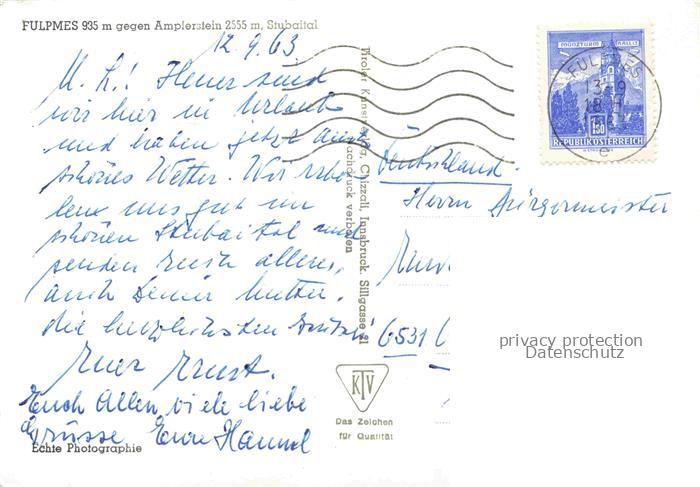 FULPMES 935 m gegen Ampferstein 2555 m, Stubaital
12.9.63
M. L.! Heuer sind
wir hier in Urlaub
und haben jetzt auch
schönes Wetter. Wir erho-
len uns gut im
schönen Stubaital und
senden Euch allen,
auch Deiner Mutter,
die herzlichsten Grüße
Euer Ernst.
Euch Allen viele liebe
Grüsse Eure Hannel
Echte Photographie
Tiroler Kunstverlag, Chizzali, Innsbruck, Sillgasse 21
Nachdruck verboten
KTV
Das Zeichen
für Qualität
MÜNZTURM HALL
1.50
REPUBLIK ÖSTERREICH
FULPMES
13.9
18 H
e
Deutschland.
Herrn Bürgermeister
6531
privacy protection
Datenschutz